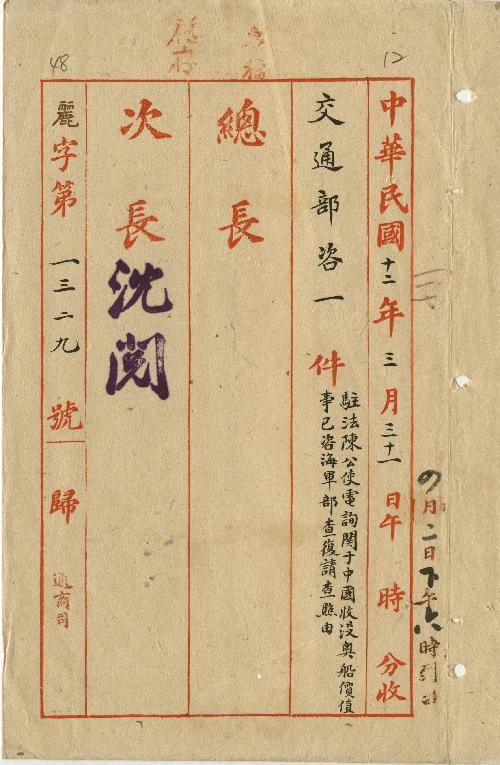 12
中華民國十二年三月三十一日午時分收
交通部咨一件
駐法陳公使電詢関于中國收沒奥船價值
事已咨海軍部查復請查照由
總長
次長
沈閱
麗字第一三二九號歸
通商司
48
月二日下午六時到